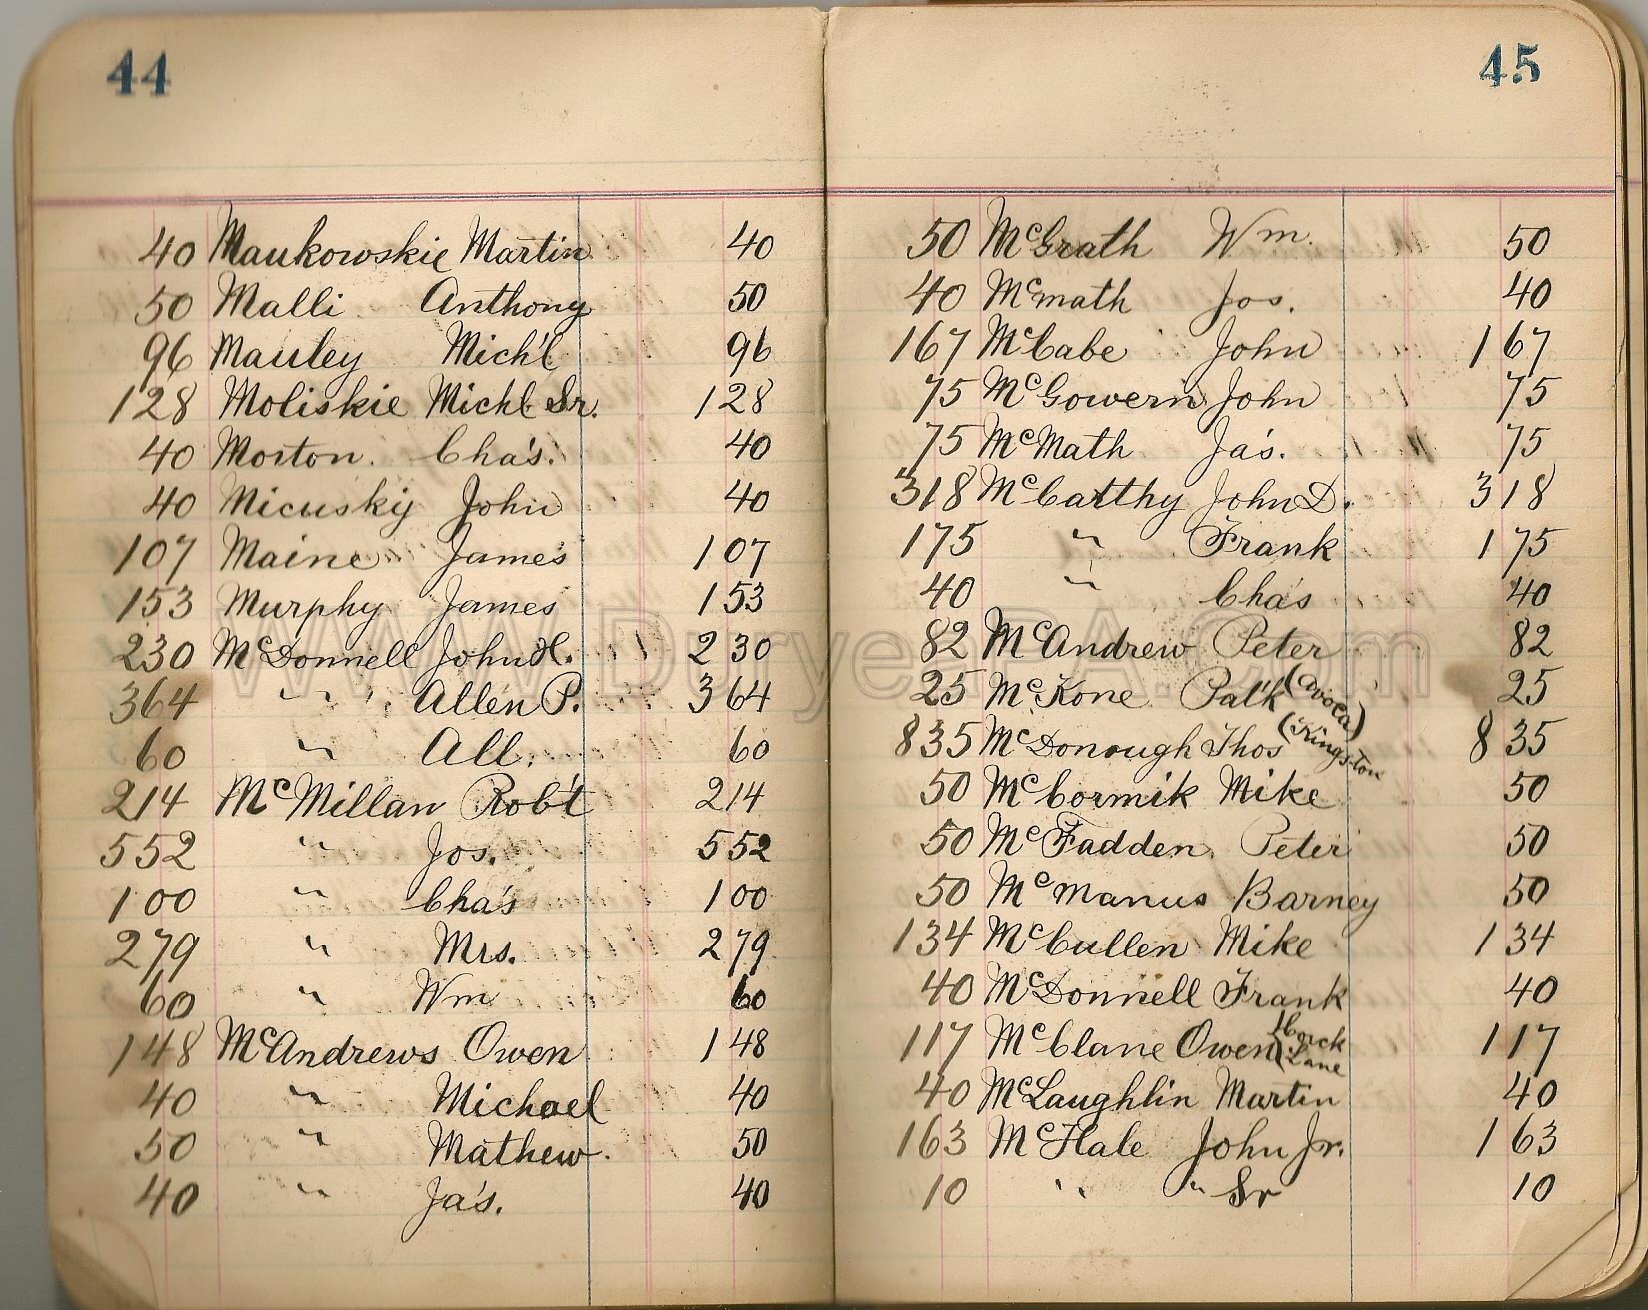 44
40 Maukowskie Martin 40
50 Malli Anthony 50
96 Mauley Mich'l 96
128 Moliskie Michl Sr. 128
40 Morton. Cha's. 40
40 Micusky John 40
107 Maine James 107
153 Murphy James 153
230 McDonnell John H. 230
364 " Allen P. 364
60 " All. 60
214 McMillan Rob't 214
552 " Jos. 552
100 " Cha's 100
279 " Mrs. 279
60 " Wm 60
148 McAndrews Owen 148
40 " Michael 40
50 " Mathew. 50
40 " Ja's. 40
45
50 McGrath Wm. 50
40 Mcmath Jos. 40
167 McCabe John 167
75 McGowern John 75
75 McMath Ja's. 75
318 McCatthy John D. 318
175 " Frank 175
40 " Cha's 40
82 McAndrew Peter 82
25 McKone Pat'k (Avoca) 25
835 McDonough Thos (Kingston 835
50 McCormik Mike 50
50 McFadden Peter 50
50 McManus Barney 50
134 McCullen Mike 134
40 McDonnell Frank 40
117 McClane Owen Lane 117
40 McLaughlin Martin 40
163 McHale John Jr. 163
10 " " Sr 10
www.DuryeaPA.Com